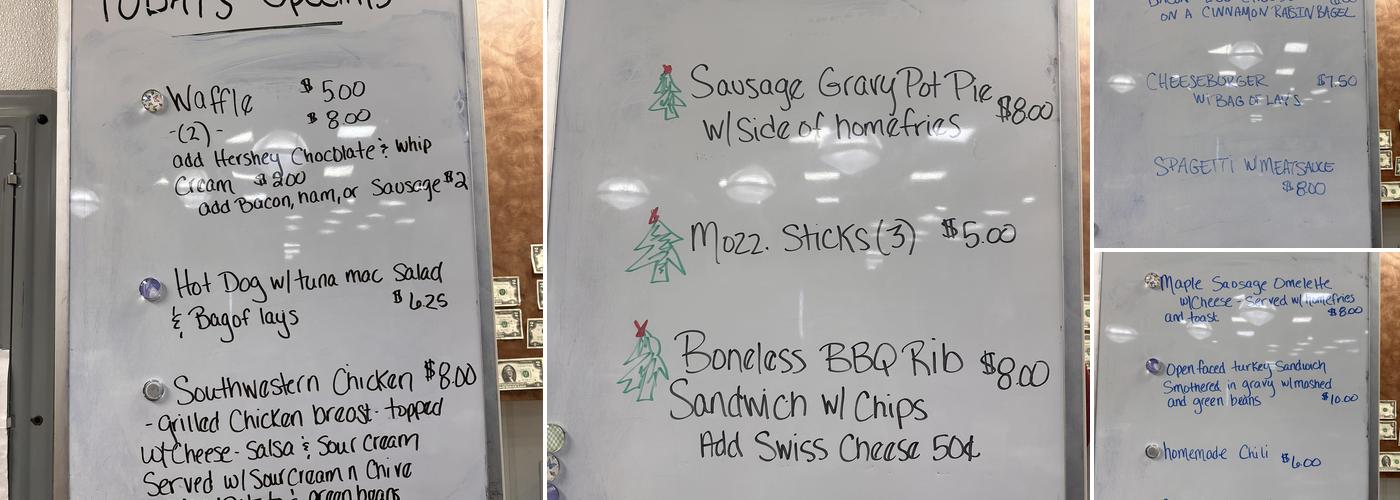 TODAY'S Specials
Waffle $5.00
-(2)- $8.00
add Hershey Chocolate & whip
Cream $2.00
add Bacon, ham, or Sausage $2
Hot Dog w/ tuna mac Salad
& Bag of lays $6.25
Southwestern Chicken $8.00
- grilled Chicken breast - topped
w/ Cheese - Salsa & Sour Cream
Served w/ Sour Cream n Chive
& green beans
Sausage Gravy Pot Pie $8.00
w/ Side of homefries
Mozz. Sticks (3) $5.00
Boneless BBQ Rib $8.00
Sandwich w/ Chips
Add Swiss Cheese 50¢
ON A CINNAMON RAISIN BAGEL
CHEESEBURGER $7.50
W/ BAG OF LAYS
SPAGETTI W MEATSAUCE
$8.00
Maple Sausage Omelette
w/ Cheese - Served w/ homefries
and toast $8.00
Open faced turkey Sandwich
Smothered in gravy w/ mashed
and green beans $10.00
homemade Chili $6.00